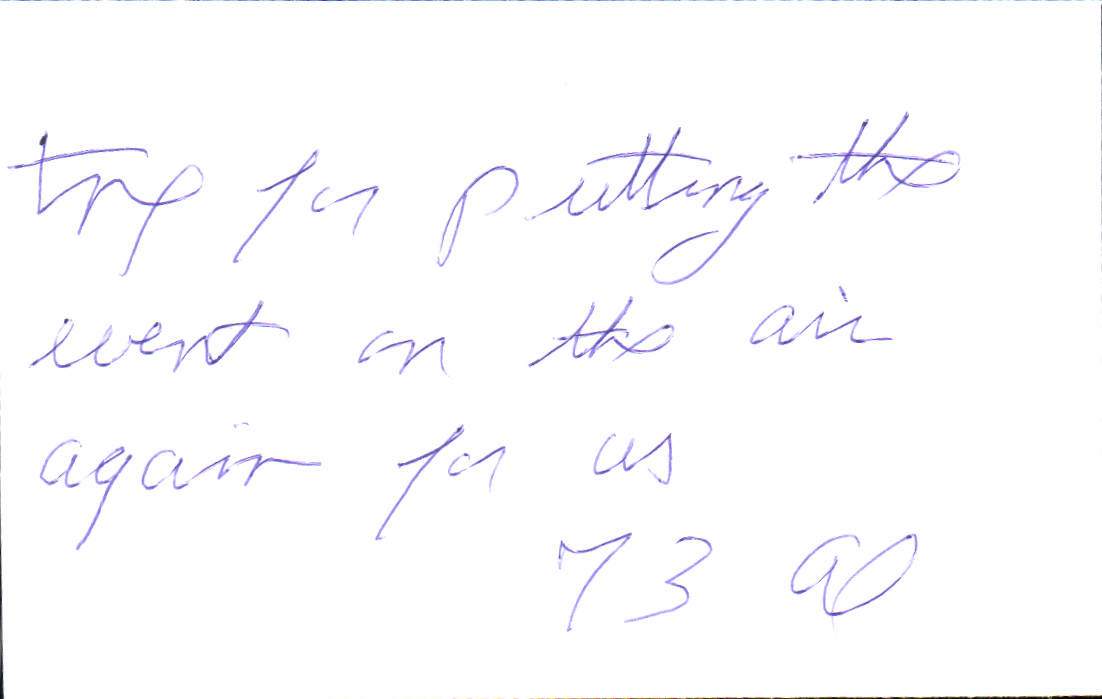 Tnx for putting the
event on the air
again for us
73 Al